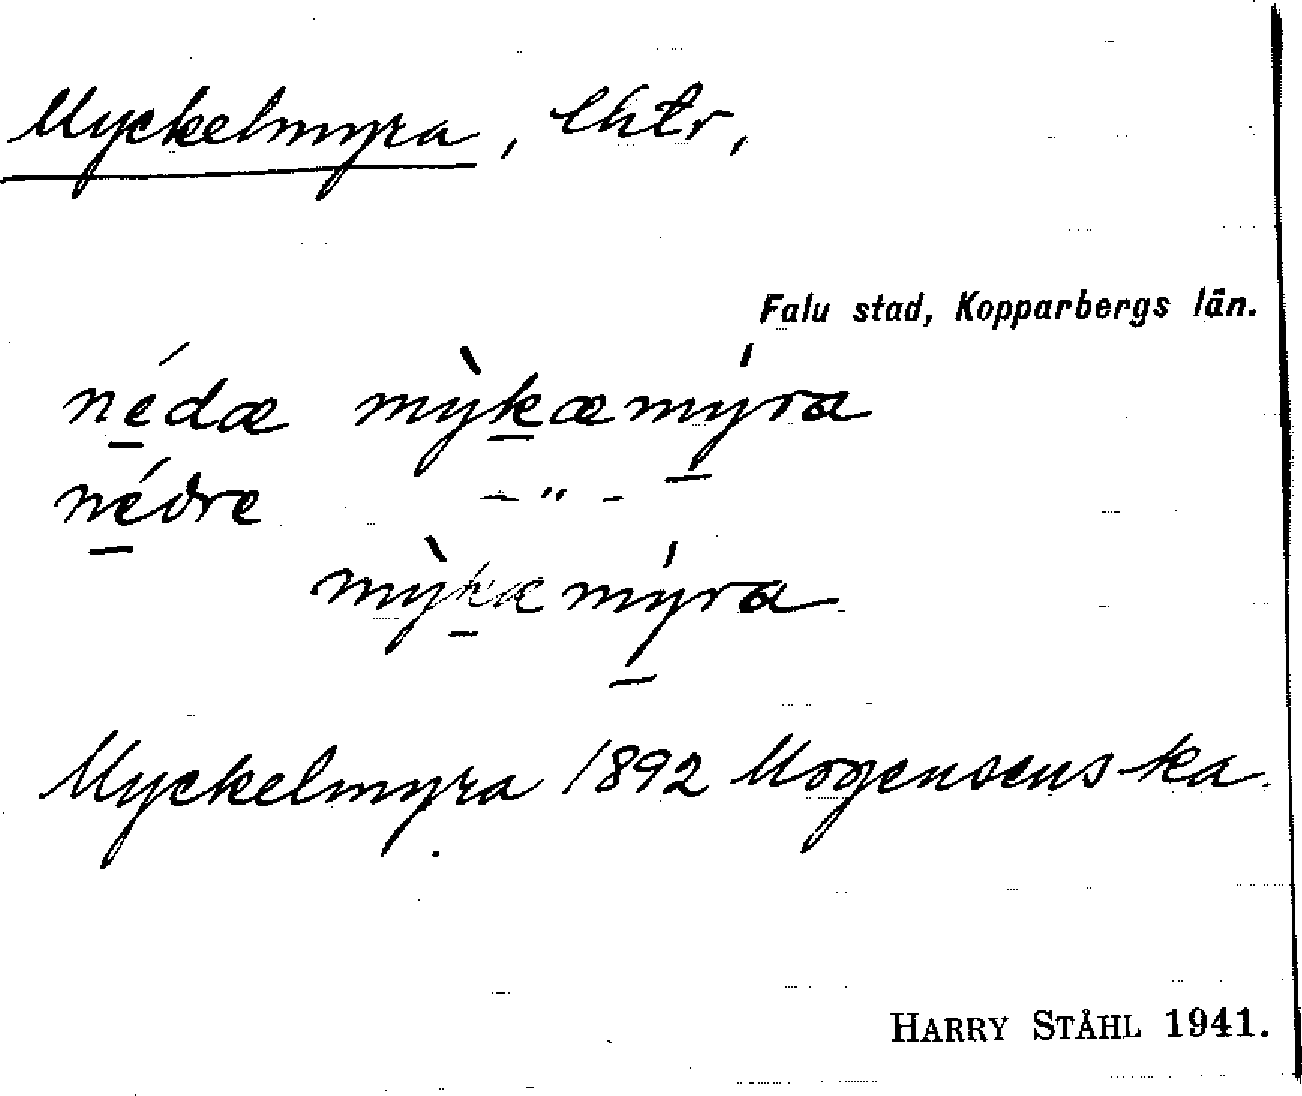 Myckelmyra, lhtr,
Falu stad, Kopparbergs län.
nédæ mỳkæmýra
nédre –"–
mỳkæmýra
Myckelmyra 1892 Mogensens ka.
HARRY STÅHL 1941.